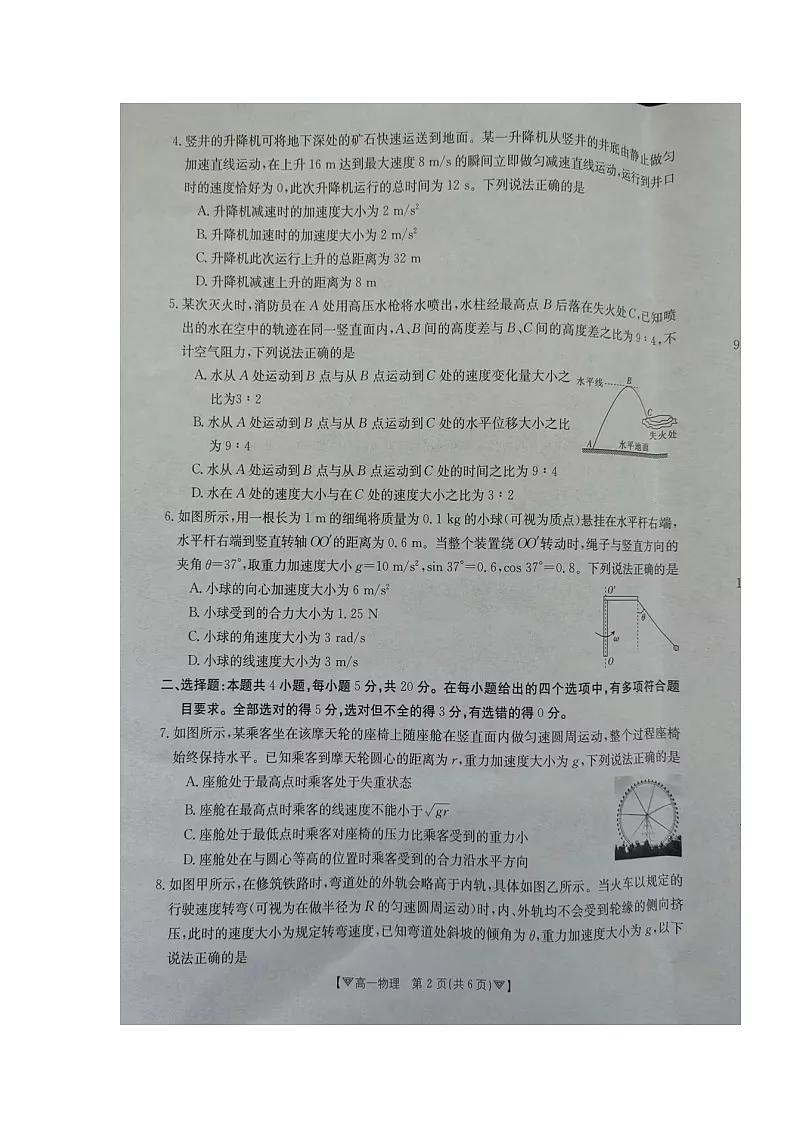 4. 竖井的升降机可将地下深处的矿石快速运送到地面。某一升降机从竖井的井底由静止做匀
加速直线运动,在上升 16 m 达到最大速度 8 m/s 的瞬间立即做匀减速直线运动,运行到井口
时的速度恰好为 0,此次升降机运行的总时间为 12 s。下列说法正确的是
A. 升降机减速时的加速度大小为 2 m/s²
B. 升降机加速时的加速度大小为 2 m/s²
C. 升降机此次运行上升的总距离为 32 m
D. 升降机减速上升的距离为 8 m
5. 某次灭火时,消防员在 A 处用高压水枪将水喷出,水柱经最高点 B 后落在失火处C,已知喷
出的水在空中的轨迹在同一竖直面内,A、B 间的高度差与 B、C 间的高度差之比为 9∶4,不
计空气阻力,下列说法正确的是
A. 水从 A 处运动到 B 点与从 B 点运动到 C 处的速度变化量大小之
比为3∶2
B. 水从 A 处运动到 B 点与从 B 点运动到 C 处的水平位移大小之比
为 9∶4
C. 水从 A 处运动到 B 点与从 B 点运动到 C 处的时间之比为 9∶4
D. 水在 A 处的速度大小与在 C 处的速度大小之比为 3∶2
水平线 B
C
失火处
A 水平地面
6. 如图所示,用一根长为 1 m 的细绳将质量为 0.1 kg 的小球(可视为质点)悬挂在水平杆右端,
水平杆右端到竖直转轴 OO′的距离为 0.6 m。当整个装置绕 OO′转动时,绳子与竖直方向的
夹角 θ=37°,取重力加速度大小 g=10 m/s²,sin 37°=0.6,cos 37°=0.8。下列说法正确的是
A. 小球的向心加速度大小为 6 m/s²
B. 小球受到的合力大小为 1.25 N
C. 小球的角速度大小为 3 rad/s
D. 小球的线速度大小为 3 m/s
O′
θ
ω
O
二、选择题:本题共 4 小题,每小题 5 分,共 20 分。在每小题给出的四个选项中,有多项符合题
目要求。全部选对的得 5 分,选对但不全的得 3 分,有选错的得 0 分。
7. 如图所示,某乘客坐在该摩天轮的座椅上随座舱在竖直面内做匀速圆周运动,整个过程座椅
始终保持水平。已知乘客到摩天轮圆心的距离为 r,重力加速度大小为 g,下列说法正确的是
A. 座舱处于最高点时乘客处于失重状态
B. 座舱在最高点时乘客的线速度不能小于√gr
C. 座舱处于最低点时乘客对座椅的压力比乘客受到的重力小
D. 座舱处在与圆心等高的位置时乘客受到的合力沿水平方向
8. 如图甲所示,在修筑铁路时,弯道处的外轨会略高于内轨,具体如图乙所示。当火车以规定的
行驶速度转弯(可视为在做半径为 R 的匀速圆周运动)时,内、外轨均不会受到轮缘的侧向挤
压,此时的速度大小为规定转弯速度,已知弯道处斜坡的倾角为 θ,重力加速度大小为 g,以下
说法正确的是
【高一物理 第 2 页(共 6 页)】
9
1